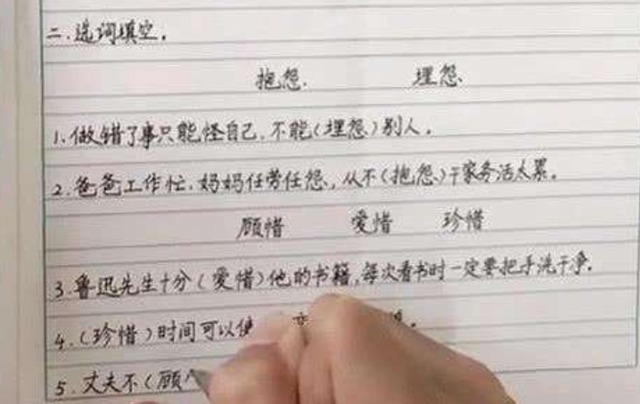 二.选词填空。
抱怨. 埋怨.
1.做错了事只能怪自己.不能(埋怨)别人。
2.爸爸工作忙.妈妈任劳任怨,从不(抱怨)干家务活太累。
顾惜 爱惜 珍惜
3.鲁迅先生十分(爱惜)他的书籍,每次看书时一定要把手洗干净.
4.(珍惜)时间可以使
5.丈夫不(顾